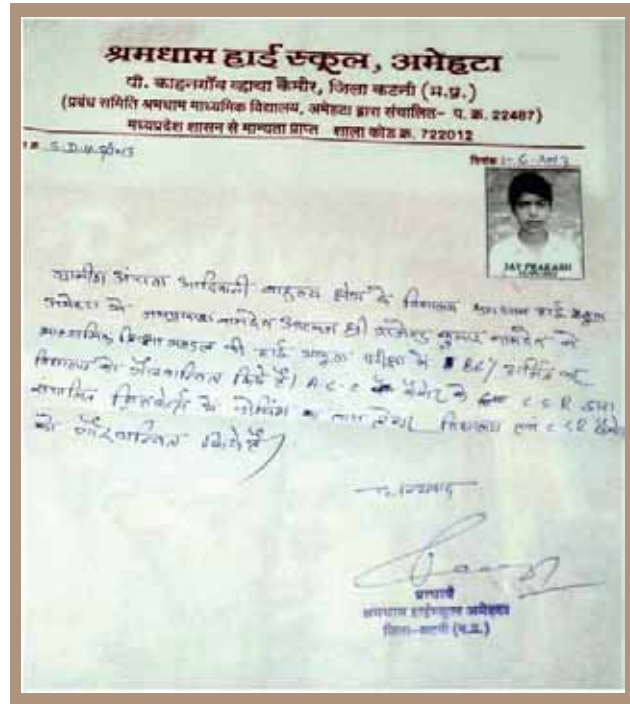 श्रमधाम हाई स्कूल, अमेहटा
पो. काहनगाँव व्हाया कैमोर, जिला कटनी (म.प्र.)
(प्रबंध समिति श्रमधाम माध्यमिक विद्यालय, अमेहटा द्वारा संचालित- पं. क्र. 22487)
मध्यप्रदेश शासन से मान्यता प्राप्त शाला कोड क्र. 722012
दिनांक 1-6-2013
JAY PRAKASH
ग्रामीण अंचल आदिवासी बाहुल्य क्षेत्र के विद्यालय श्रमधाम हाई स्कूल
अमेहटा के जयप्रकाश नामदेव आत्मज श्री कुमार नामदेव ने
माध्यमिक शिक्षा मण्डल की हाई स्कूल परीक्षा में
विद्यालय को गौरवान्वित किये हैं। A.C.C कैमोर के C S R द्वारा
संचालित कोचिंग का लाभ लेकर विद्यालय एवं C S R कैमोर
को गौरवान्वित किये हैं
धन्यवाद
प्राचार्य
श्रमधाम हाईस्कूल अमेहटा
जिला-कटनी (म.प्र.)